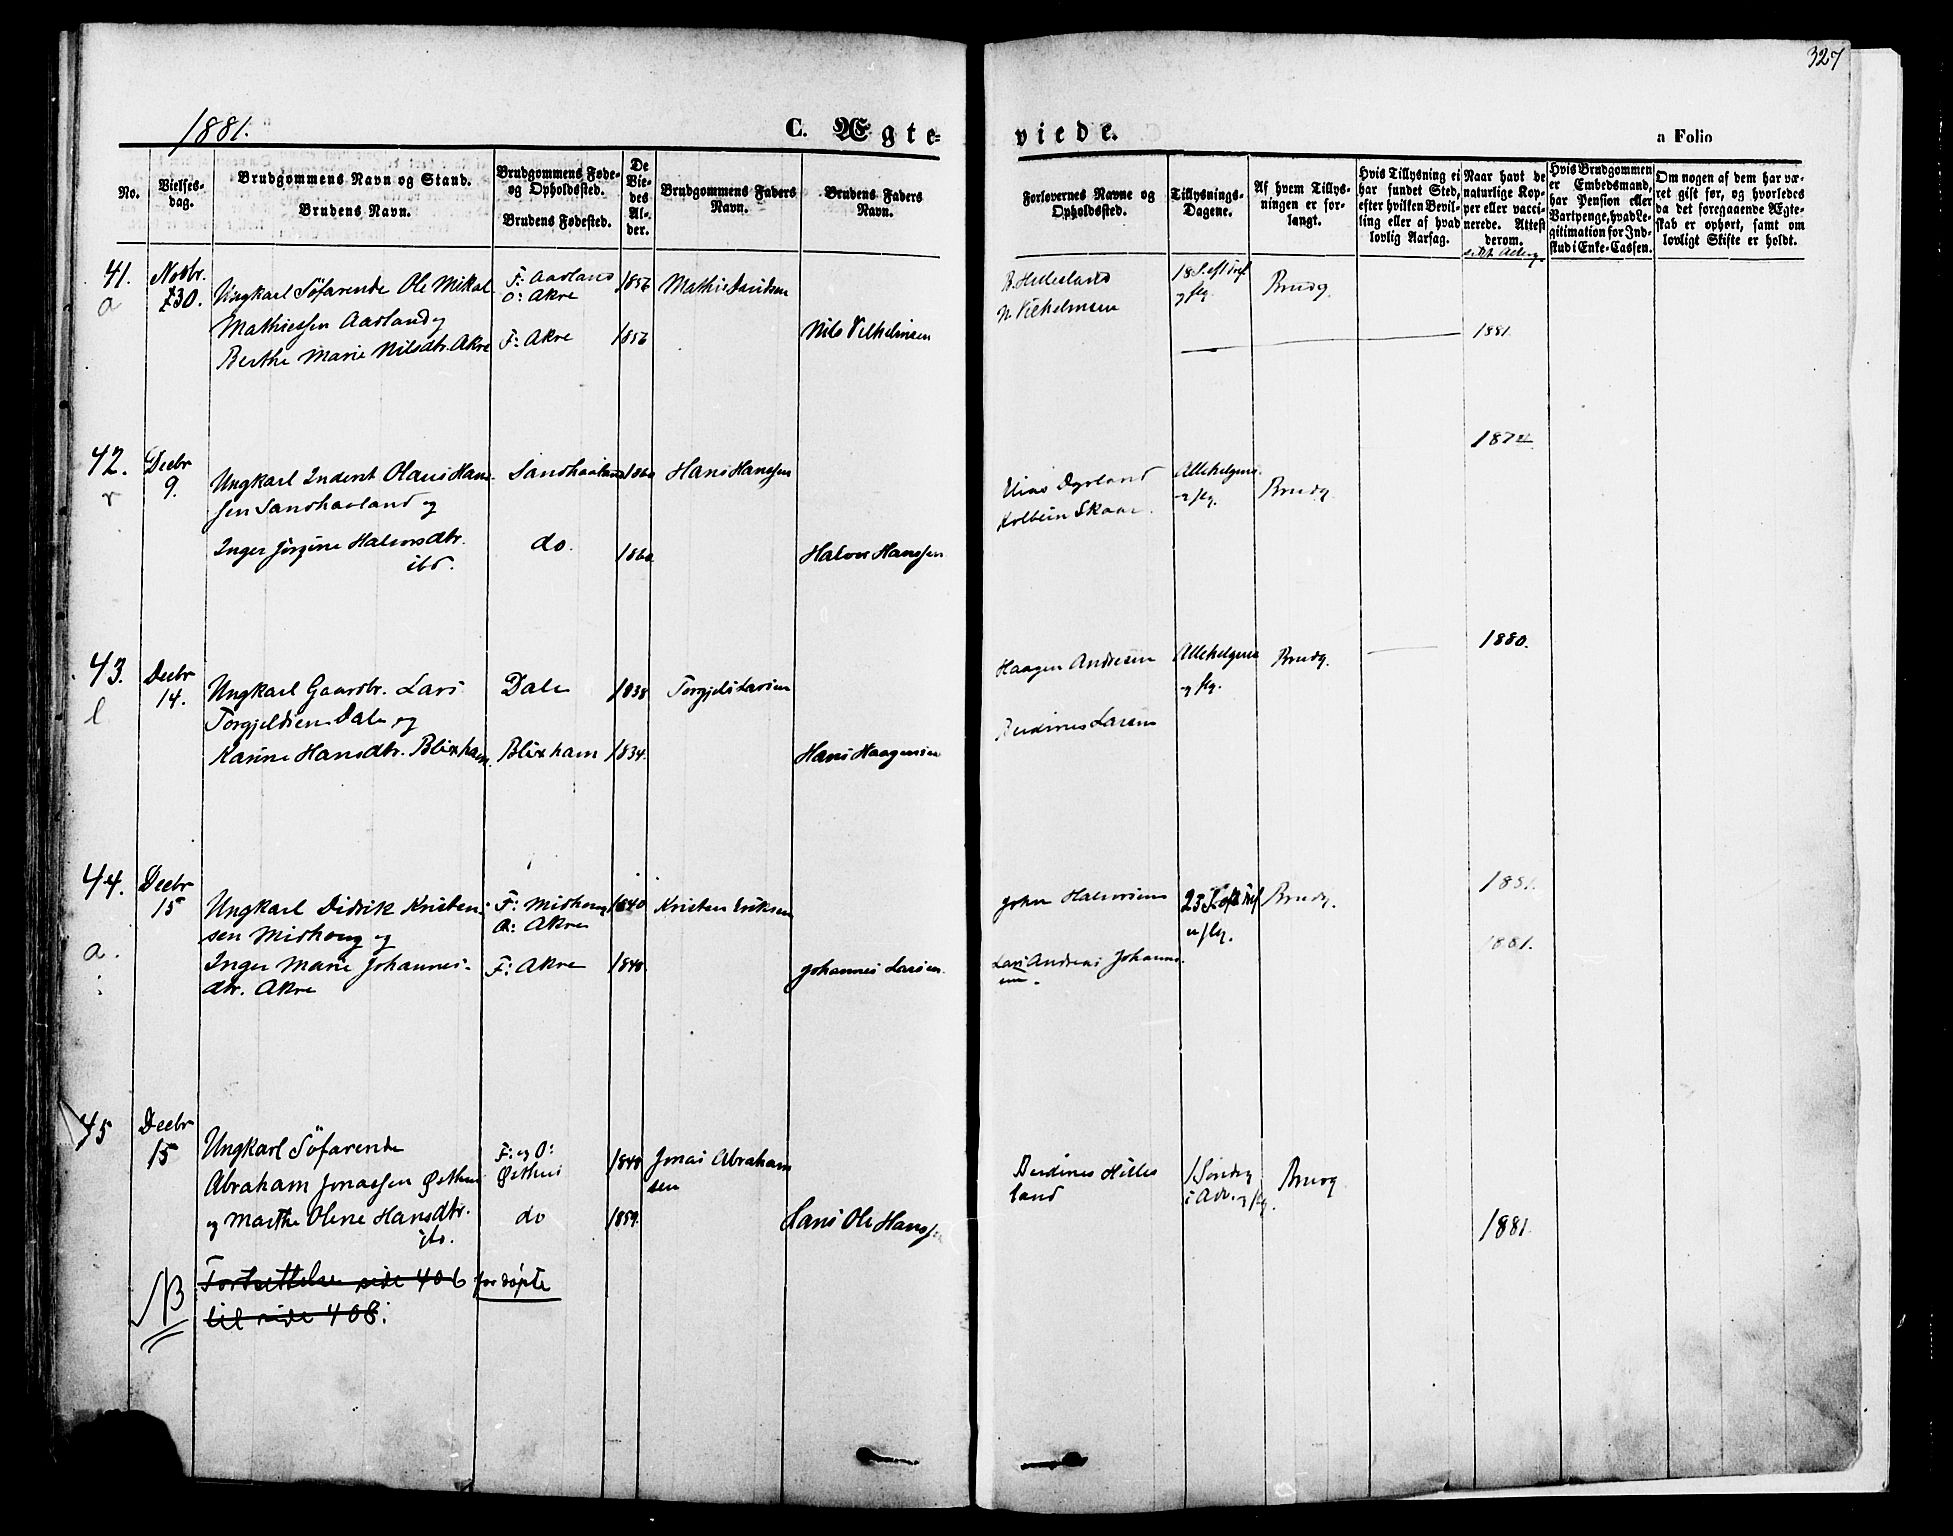 327
1881.
C. Ægte-
viede.
a Folio
No.
Vielses-
dag.
Brudgommens Navn og Stand.
Brudens Navn.
Brudgommens Føde-
og Opholdssted.
Brudens Fødested.
De
Vie-
des
Al-
der.
Brudgommens Faders
Navn.
Brudens Faders
Navn.
Forlovernes Navne og
Opholdssted.
Tillysnings-
Dagene.
Af hvem Tillys-
ningen er for-
langt.
Hvis Tillysning ei
har fundet Sted,
efter hvilken Bevil-
ling eller af hvad
lovlig Aarsag.
Naar havt de
naturlige Kop-
per eller vacci-
nerede. Attest
derom.
Hvis Brudgommen
er Embedsmand,
har Pension eller
Vartpenge, hvad Le-
gitimation for Ind-
skud i Enke-Cassen.
Om nogen af dem har væ-
ret gift før, og hvorledes
da det foregaaende Ægte-
skab er ophørt, samt om
lovligt Skifte er holdt.
41.
a
Novbr.
30.
Ungkarl Söfarende Ole Mikal
Mathiessen Aarland og
Berthe Marie Nilsdtr. Akre
F: Aarland
O: Akre
F: Akre
1856
1856
Mathis Davidsen
Nils Vilhelmsen
B. Hellesland
N. Vilhelmsen
18 S. eft Tref
og flg.
Brudg.
1881.
42.
r
Decbr
9.
Ungkarl Inderst Olaus Hans-
sen Sandhaaland og
Inger Jörgine Halvorsdtr.
ibd.
Sandhaaland
do.
1860
1860
Hans Hanssen
Halvor Hanssen
Elias Dyrland
Kolbein Skaar.
Allehelgens
og flg.
Brudg.
1874
43.
l
Decbr
14.
Ungkarl Gaardbr. Lars
Torgjeldsen Dale og
Karine Hansdtr. Blixham.
Dale
Blixham
1838
1834.
Torgjels Larsen
Hans Haagensen
Haagen Andresen
Berdines Larsen
Allehelgens
og flg.
Brudg.
1880.
44.
a.
Decbr
15
Ungkarl Didrik Kristen-
sen Midhoug og
Inger Marie Johannes-
dtr. Akre
F: Midhoug
O: Akre
F: Akre
1840
1840.
Kristen Eriksen
Johannes Larsen.
John Halvorsen
Lars Andreas Johanne-
sen.
23 S. eft Tref
og flg.
Brudg.
1881.
1881.
45
Decbr
15
Ungkarl Söfarende
Abraham Jonassen Østhus
og Marthe Olene Hansdtr.
ibd.
F: og O:
Østhus
do
1848
1859.
Jonas Abraham
sen
Hans Ole Hanssen
Berdines Hilles
land
1 Söndag
i Adv. og flg.
Brudg
1881.
NB
Fortsettelse side 406 for døpte
til side 408.